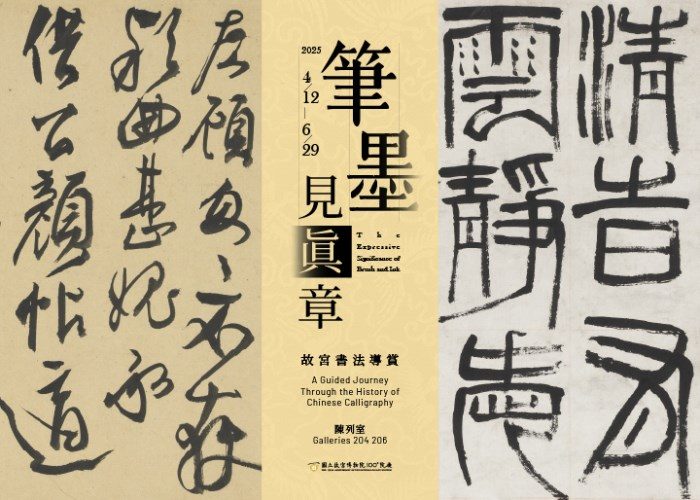 左顧
甚愧
借公顏帖適
2025
4/12
6/29
筆墨
見真章
The
Expressive
Significance of
Brush and Ink
故宮書法導賞
A Guided Journey
Through the History of
Chinese Calligraphy
陳列室
Galleries 204 206
國立故宮博物院100+院慶
清
雲靜